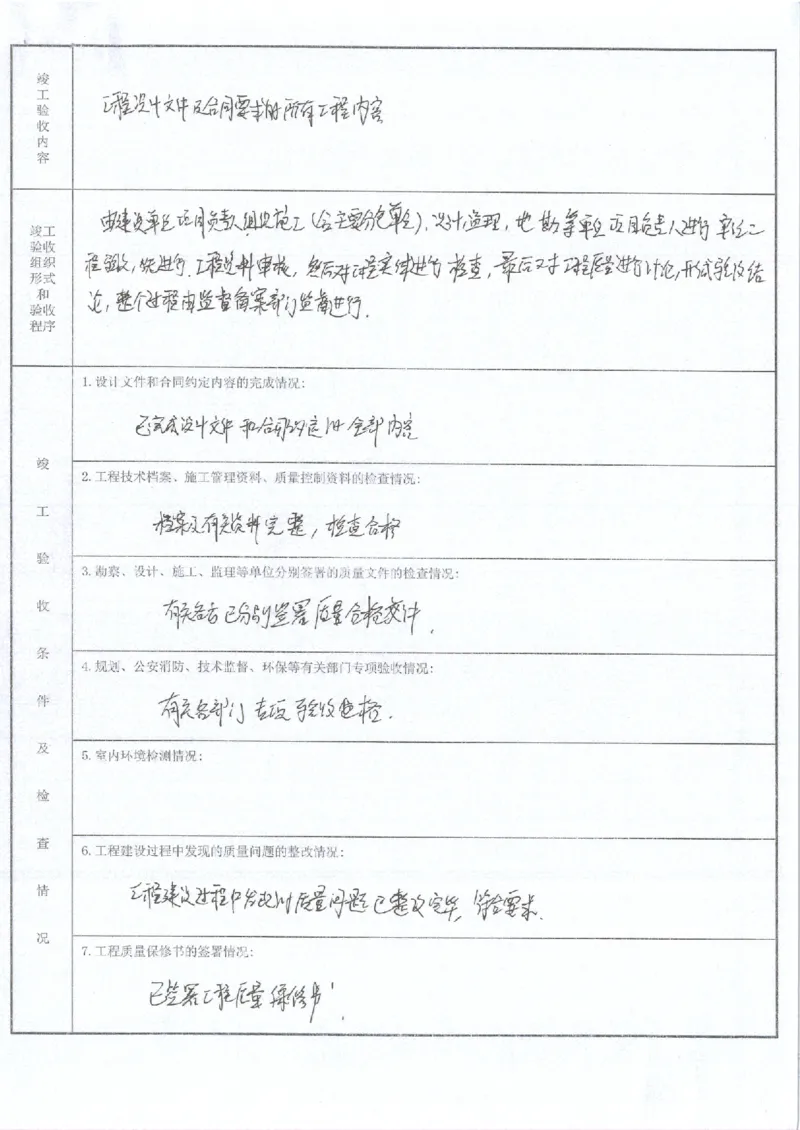 竣工验收内容
工程设计文件及合同要求的所有工程内容
竣工
验收
组织
形式
和
验收
程序
由建设单位项目负责人组织施工(含主要分包单位)、设计、监理,地勘等单位项目负责人进行单位工
程验收,先进行工程资料审核,然后对工程实体进行检查,最后又对工程质量进行讨论,形成验收结
论,整个过程由监督备案部门监督进行.
竣工验收条件及检查情况
1.设计文件和合同约定内容的完成情况:
已完成设计文件和合同约定的全部内容
2.工程技术档案、施工管理资料、质量控制资料的检查情况:
档案及有关资料完整,检查合格
3.勘察、设计、施工、监理等单位分别签署的质量文件的检查情况:
有关各方已分别签署质量合格文件.
4.规划、公安消防、技术监督、环保等有关部门专项验收情况:
有关各部门专项验收合格.
5.室内环境检测情况:
6.工程建设过程中发现的质量问题的整改情况:
工程建设过程中发现的质量问题已整改完毕,符合要求.
7.工程质量保修书的签署情况:
已签署工程质量保修书.